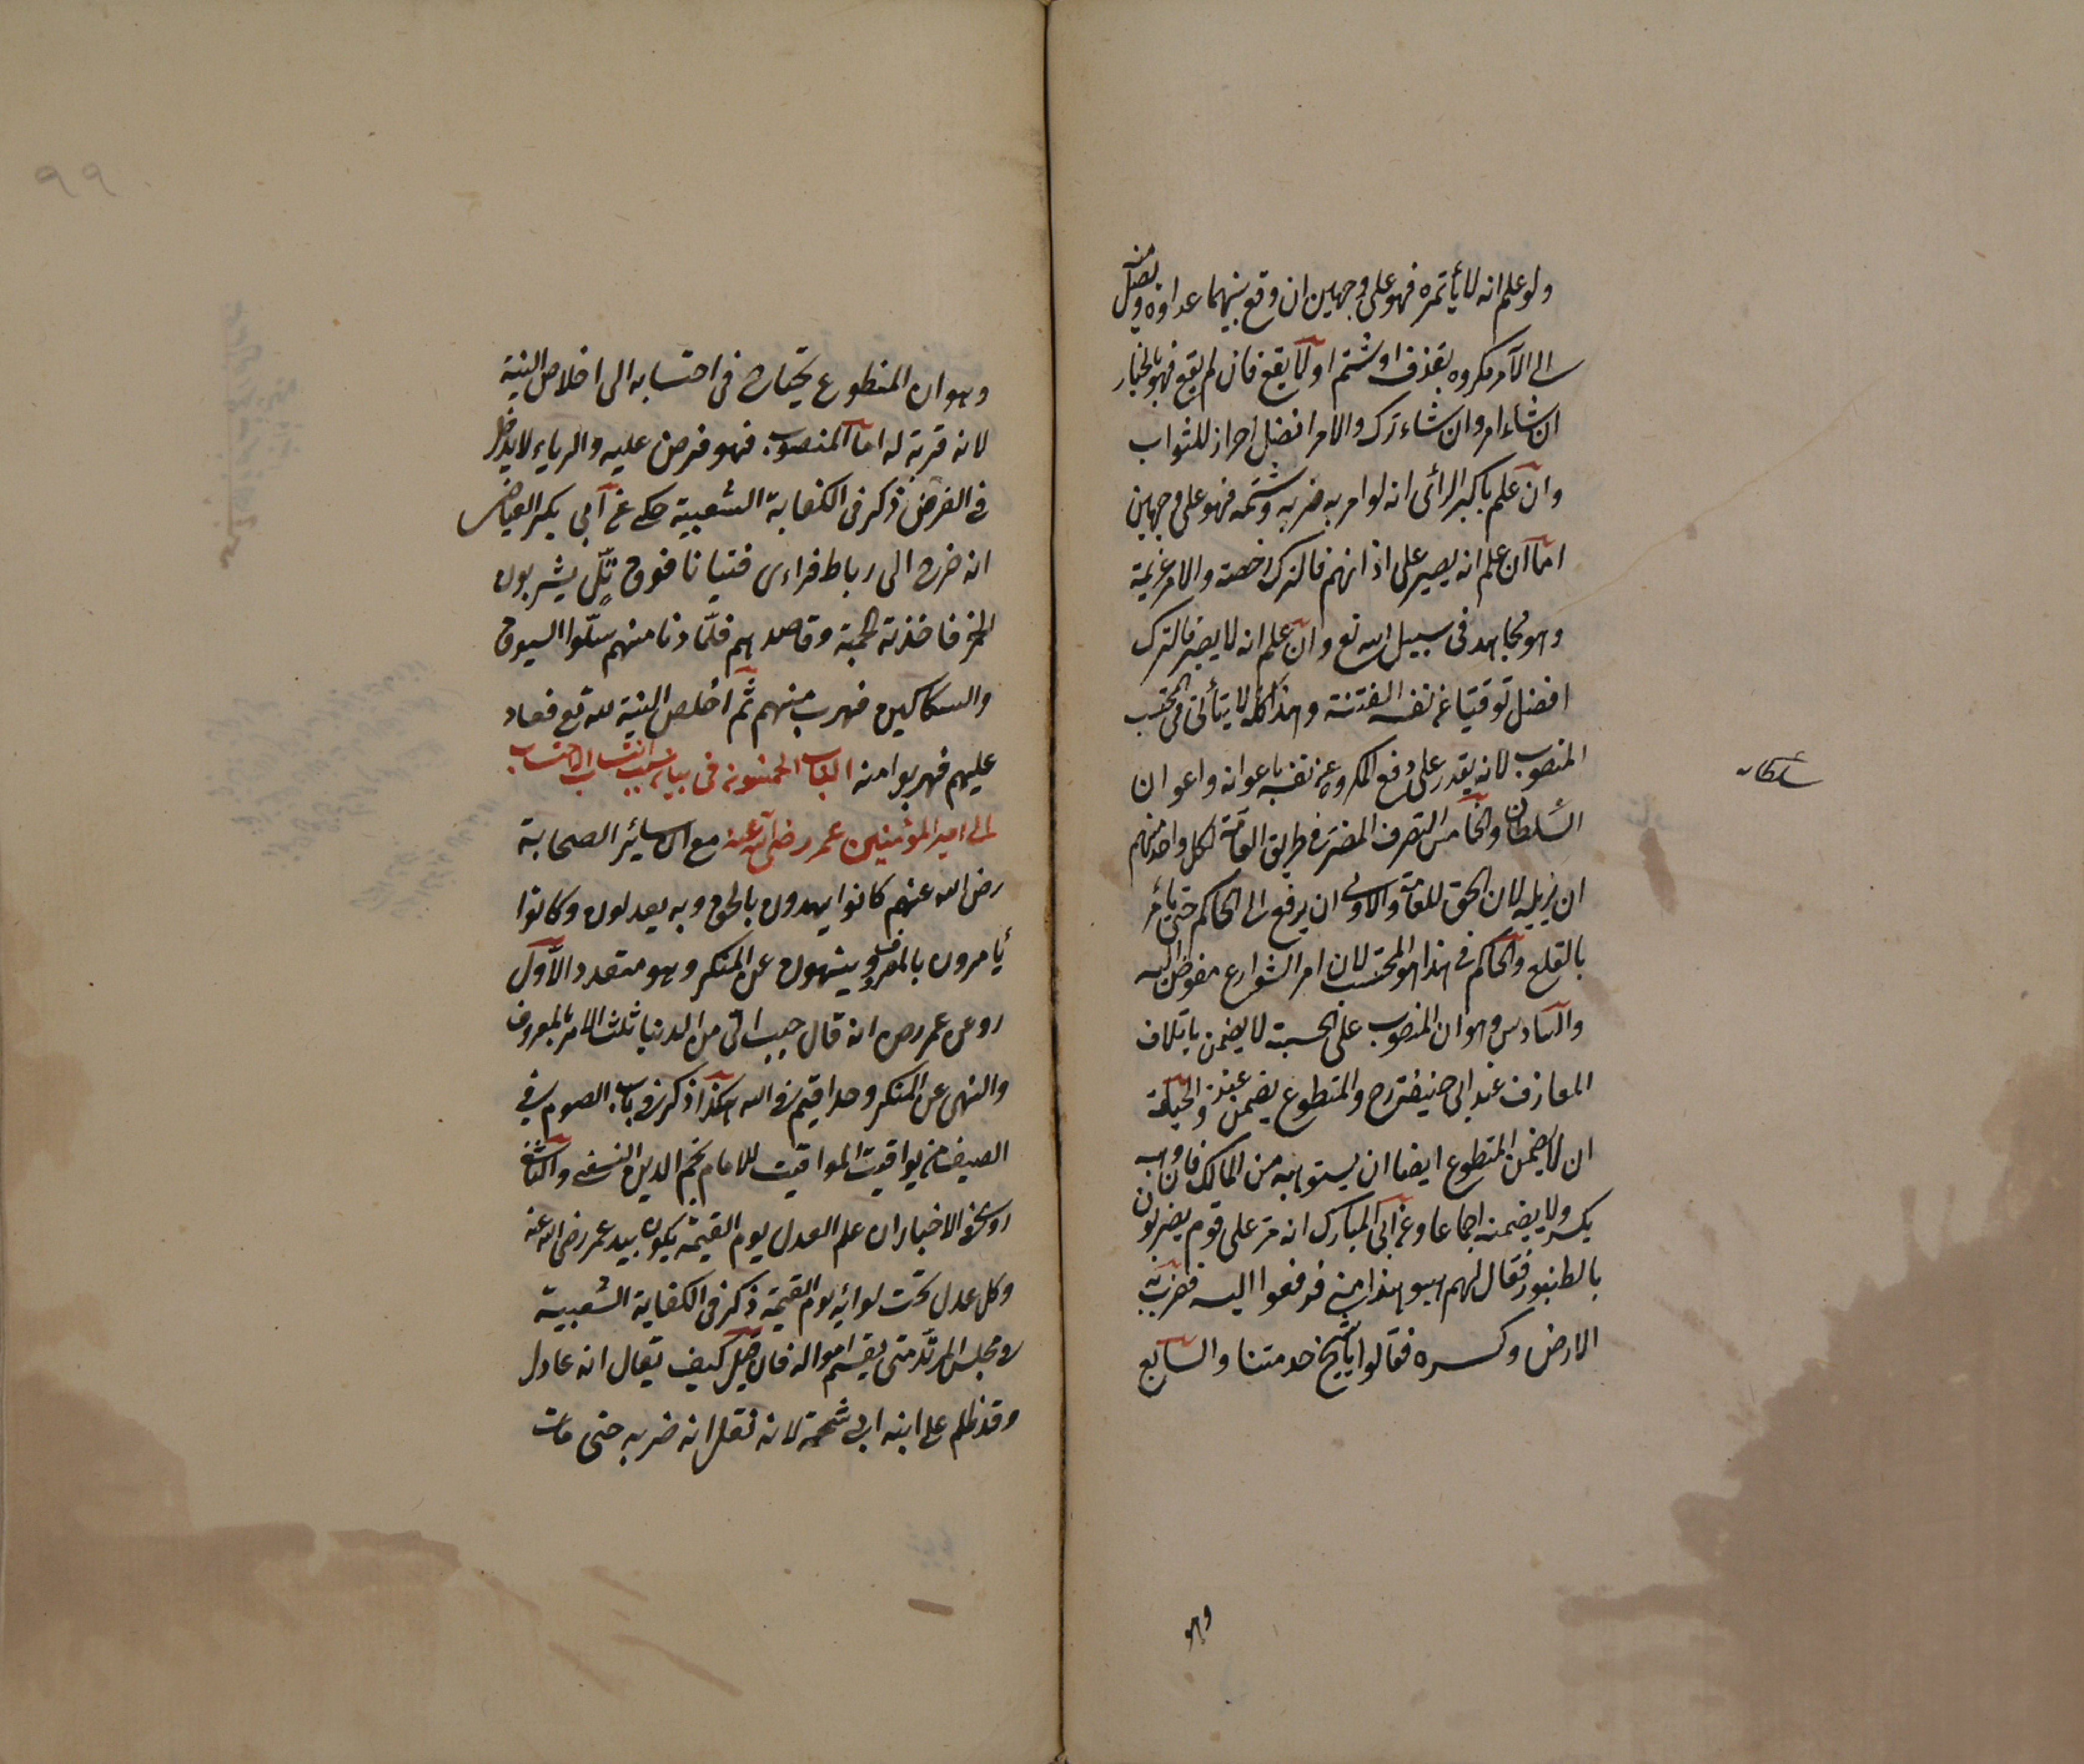 ولو علم انه لا يأتمره فهو على وجهين ان وقع بينهما عداوة ويصل منه
الى الآمر مكروه بقذف او شتم او لا يقع فان لم يقع فهو بالخيار
ان شاء امر وان شاء ترك والامر افضل احراز للثواب
وان علم باكبر الرأى انه لو امر به ضربه وشتمه فهو على وجهين
اما ان علم انه يصير على اذا نهم فالترك رخصة والامر عزيمة
وهو مجاهد فى سبيل الله تع وان علم انه لا يصبر فالترك
افضل توقيا عن نفسه الفتنة وهذا كله لا يتأتى فى المحتسب
المنصوب لانه يقدر على دفع المكروه عن نفسه باعوانه واعوان
السلطان والخامس التصرف المضر فى طريق العامة لكل واحد منهم
ان يزيله لان الحق للعامة والاولى ان يرفع الى الحاكم حتى يأمر
بالقلع والحاكم فى هذا هو المحتسب لان امر الشوارع مفوض اليه
والسادس وهو ان المنصوب على الحسبة لا يضمن باتلاف
المعازف عند ابى حنيفة رح والمتطوع يضمن عنده والحيلة
ان لا يضمن المتطوع ايضا ان يستوهبه من المالك فان وهبه
يكسر ولا يضمنه اجماعا وعن ابى المبارك انه مر على قوم يضربون
بالطنبور فقال لهم هبوا هذا منى فدفعوا اليه فضربه
الارض وكسره فقالوا يا شيخ خدمتنا والسابع
وهو
سلطان
٩٩
وهو ان المنطوع يحتاج فى احتسابه الى اخلاص النية
لانه قربة له اما المنصوب فهو فرض عليه والرياء لا يدخل
فى الفرض ذكر فى الكفاية الشعبية حكى عن ابى بكر العياض
انه خرج الى رباط فراى فتيانا فوق تل يشربون
الخمر فاخذته الحمية وقاصدهم فلما دنا منهم سلوا السيوف
والسكاكين فهرب منهم ثم اخلص النية لله تع فعاد
عليهم فهربوا منه الباب الخمسون فى بيان سبب انتساب الاحتساب
الى امير المؤمنين عمر رضى الله عنه مع ان سائر الصحابة
رض الله عنهم كانوا يهدون بالحق وبه يعدلون وكانوا
يأمرون بالمعروف وينهون عن المنكر وهو متعدد الاول
روى عن عمر رض انه قال حبب الى من الدنيا ثلث الامر بالمعروف
والنهى عن المنكر وحد اقيم فى الله هكذا ذكر فى باب الصوم فى
الصيف من يواقيت المواقيت للامام نجم الدين النسفى والثانى
روى فى الاخبار ان علم العدل يوم القيمة يكون بيد عمر رضى الله عنه
وكل عدل تحت لوائه يوم القيمة ذكر فى الكفاية الشعبية
فى مجلس المرتد متى يقسم امواله فان قيل كيف يقال انه عادل
وقد ظلم على ابنه ابى شحمة لانه نقل انه ضربه حتى مات